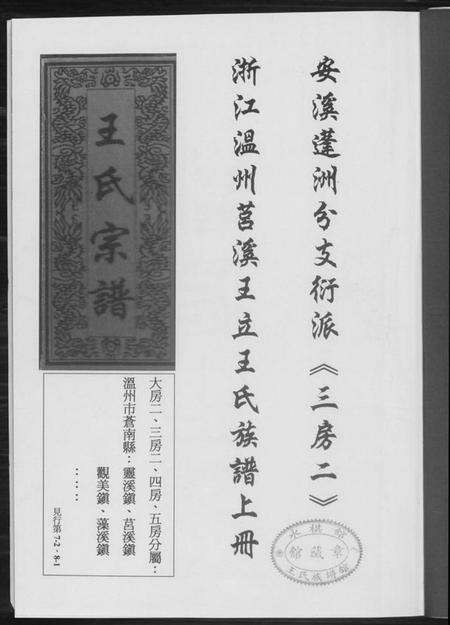 安溪蓬洲分支衍派《三房二》
浙江溫州莒溪王立王氏族譜上冊
王氏宗譜
大房二、三房二、四房、五房分屬：
溫州市蒼南縣：靈溪鎮、莒溪鎮
觀美鎮、藻溪鎮
．．．．
見行第 7-2、8-1
藏章